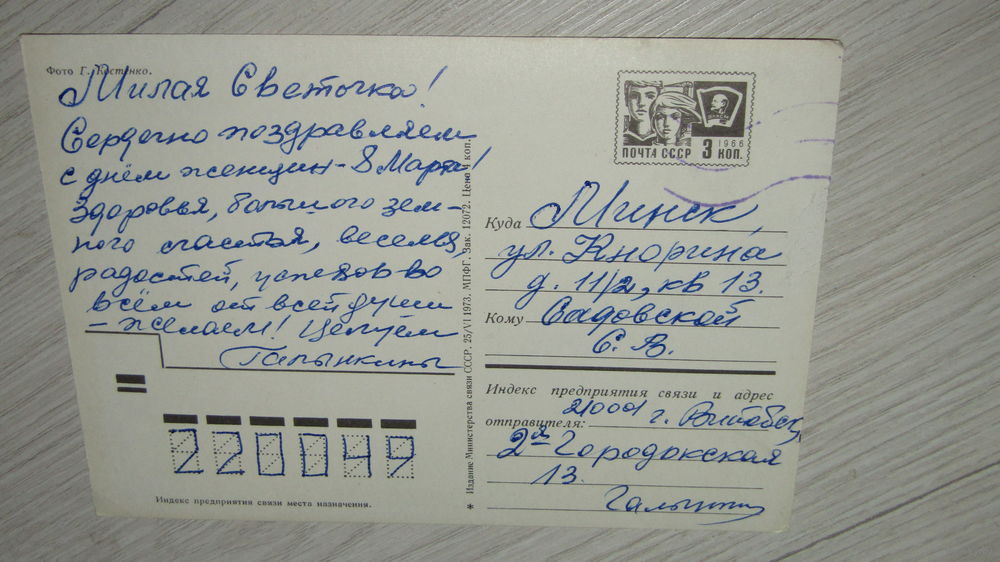 Фото Г. Костенко.
Милая Светочка!
Сердечно поздравляем
с днём женщин - 8 Марта!
Здоровья, большого зем-
ного счастья, веселья,
радостей, успехов во
всём от всей души
- желаем! Целуем
Галынкины
220049
Индекс предприятия связи места назначения.
Издание Министерства связи СССР. 25/VI 1973. МПФГ. Зак. 12072. Цена 4 коп.
ПОЧТА СССР 3 КОП.
1966
ВЛКСМ
Куда Минск,
ул. Кнорина
д. 11/2, кв 13.
Кому Садовской
С. В.
Индекс предприятия связи и адрес
отправителя: 210001 г. Витебск,
2ая Городокская
13.